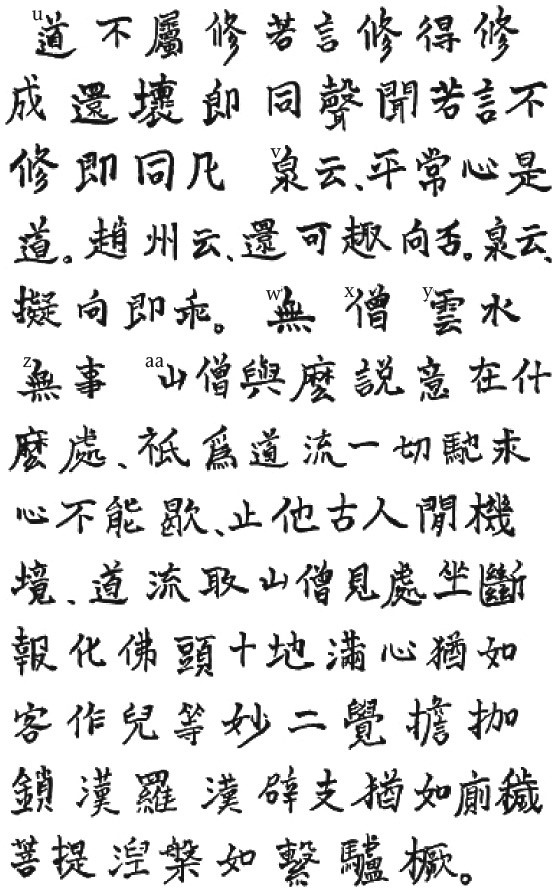 u道不屬修若言修得修
成還壞即同聲聞若言不
修即同凡 v泉云、平常心是
道。趙州云、還可趣向否。泉云、
擬向即乖。 w無 x僧 y雲水
z無事 aa山僧與麼說意在什
麼處、祇爲道流一切馳求
心不能歇、止他古人閒機
境、道流取山僧見處坐斷
報化佛頭十地滿心猶如
客作兒等妙二覺擔枷
鎖漢羅漢辟支猶如廁穢
菩提涅槃如繫驢橛。